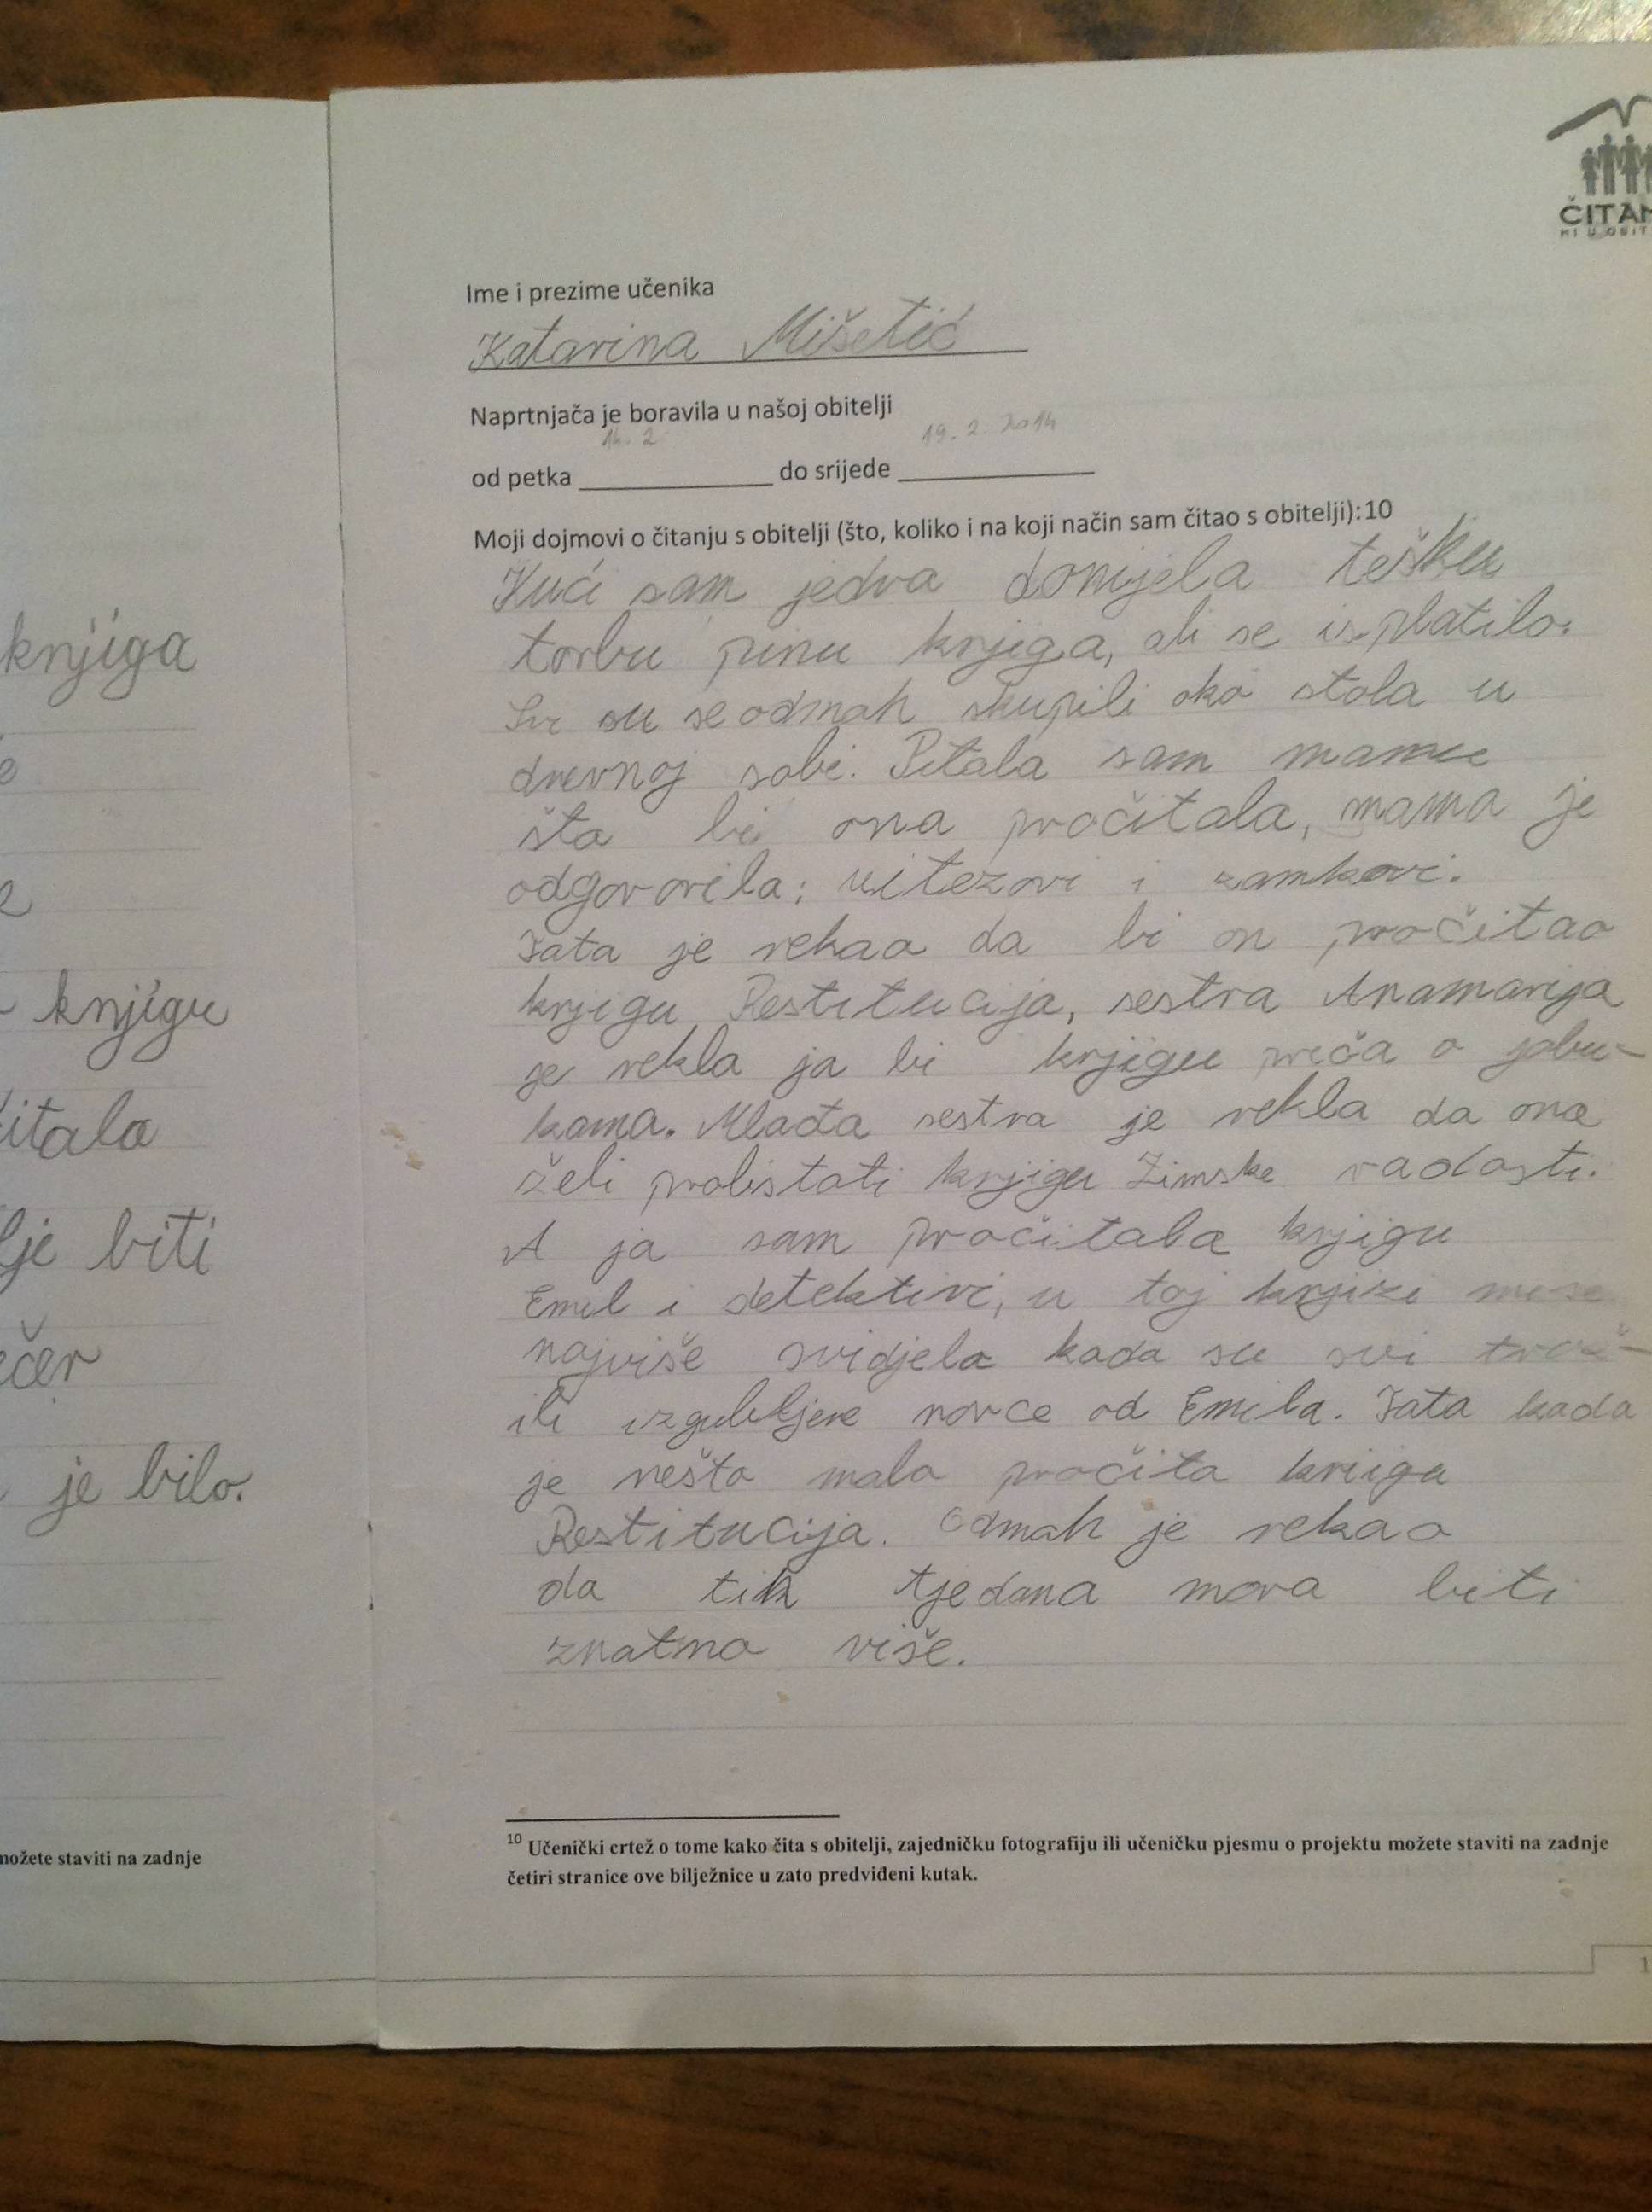 knjiga
knjigu
čitala
lje biti
ečer
je bilo.
možete staviti na zadnje
ČITAM
Ime i prezime učenika
Katarina Mišetić
Naprtnjača je boravila u našoj obitelji
14. 2 19. 2. 2014
od petka do srijede
Moji dojmovi o čitanju s obitelji (što, koliko i na koji način sam čitao s obitelji):10
Kući sam jedva donijela tešku
torbu punu knjiga, ali se isplatilo.
Svi su se odmah skupili oko stola u
dnevnoj sobi. Pitala sam mamu
šta bi ona pročitala, mama je
odgovorila: vitezovi i zamkovi.
Tata je rekao da bi on pročitao
knjigu Restitucija, sestra Anamarija
je rekla ja bi knjigu priča o jabu-
kama. Mlađa sestra je rekla da ona
želi prolistati knjigu Zimske radosti.
A ja sam pročitala knjigu
Emil i detektivi, u toj knjizi mi se
najviše svidjela kada su svi traž-
ili izgubljene novce od Emila. Tata kada
je nešto malo pročita knjigu
Restitucija. Odmah je rekao
da tih tjedana mora biti
znatno više.
10 Učenički crtež o tome kako čita s obitelji, zajedničku fotografiju ili učeničku pjesmu o projektu možete staviti na zadnje
četiri stranice ove bilježnice u zato predviđeni kutak.
1